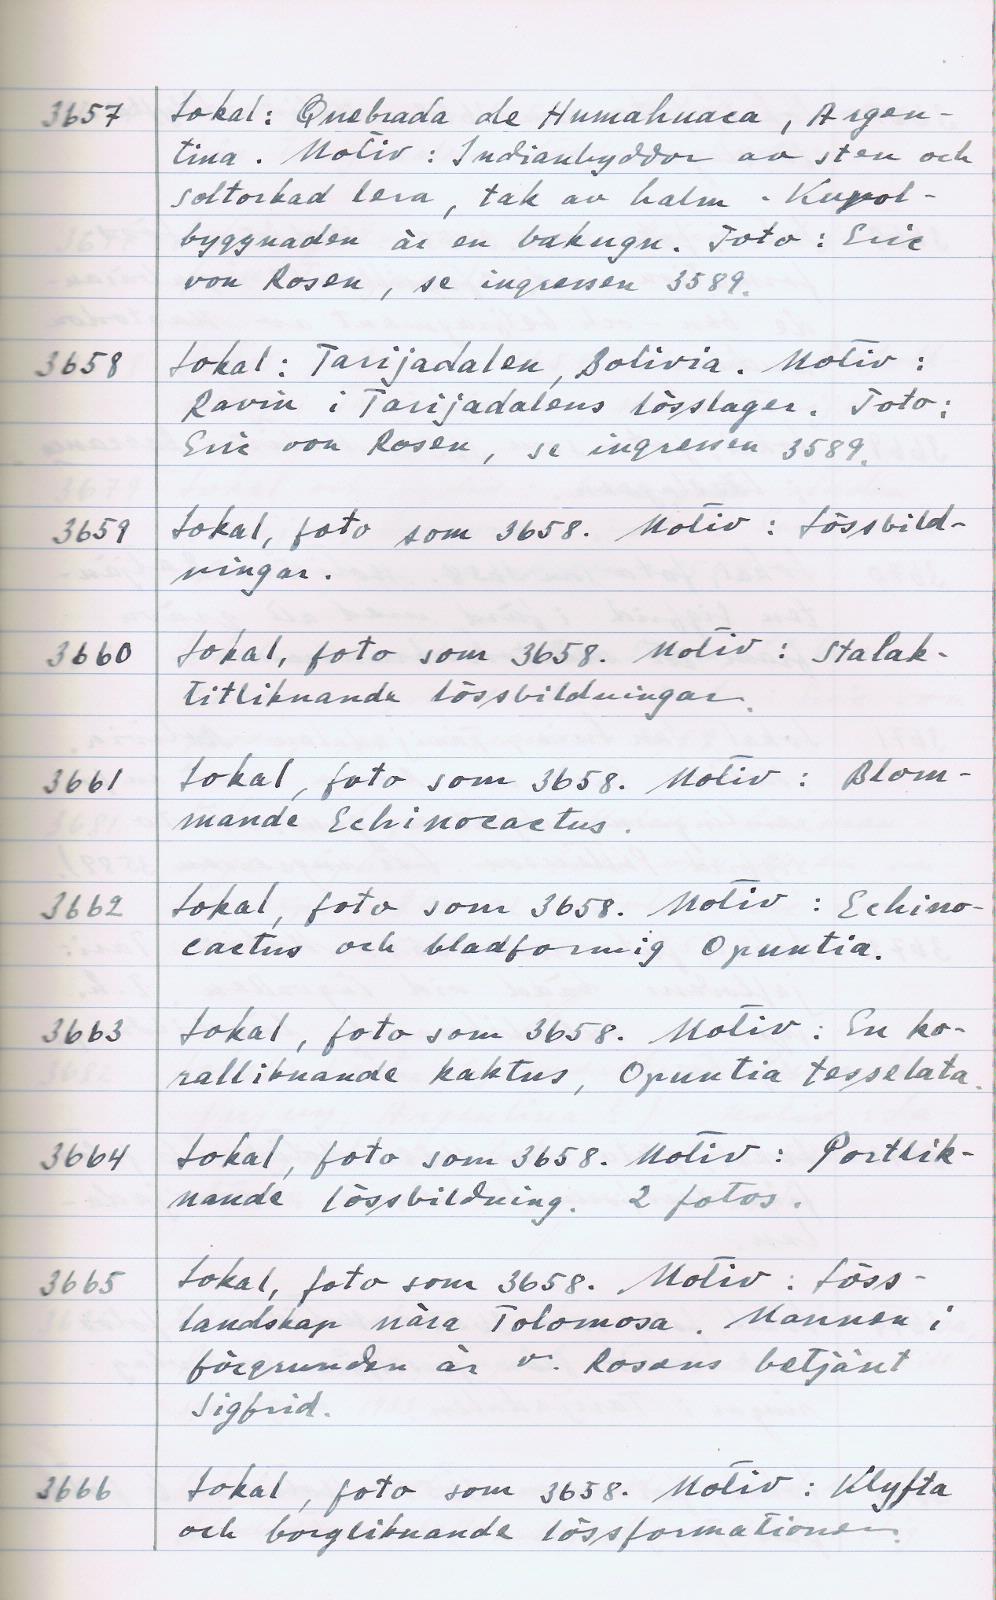 3657 Lokal: Quebrada de Humahuaca, Argen-
tina. Motiv: Indianhyddor av sten och
soltorkad lera, tak av halm. Kupol-
byggnaden är en bakugn. Foto: Eric
von Rosen, se ingressen 3589.
3658 Lokal: Tarijadalen, Bolivia. Motiv:
Ravin i Tarijadalens lösslager. Foto:
Eric von Rosen, se ingressen 3589.
3659 Lokal, foto som 3658. Motiv: Lössbild-
ningar.
3660 Lokal, foto som 3658. Motiv: Stalak-
titliknande lössbildningar.
3661 Lokal, foto som 3658. Motiv: Blom-
mande Echinocactus.
3662 Lokal, foto som 3658. Motiv: Echino-
cactus och bladformig Opuntia.
3663 Lokal, foto som 3658. Motiv: En ko-
ralliknande kaktus, Opuntia tesselata.
3664 Lokal, foto som 3658. Motiv: Portlik-
nande lössbildning. 2 fotos.
3665 Lokal, foto som 3658. Motiv: Löss-
landskap nära Tolomosa. Mannen i
förgrunden är v. Rosens betjänt
Sigfrid.
3666 Lokal, foto som 3658. Motiv: Klyfta
och borgliknande lössformationer.